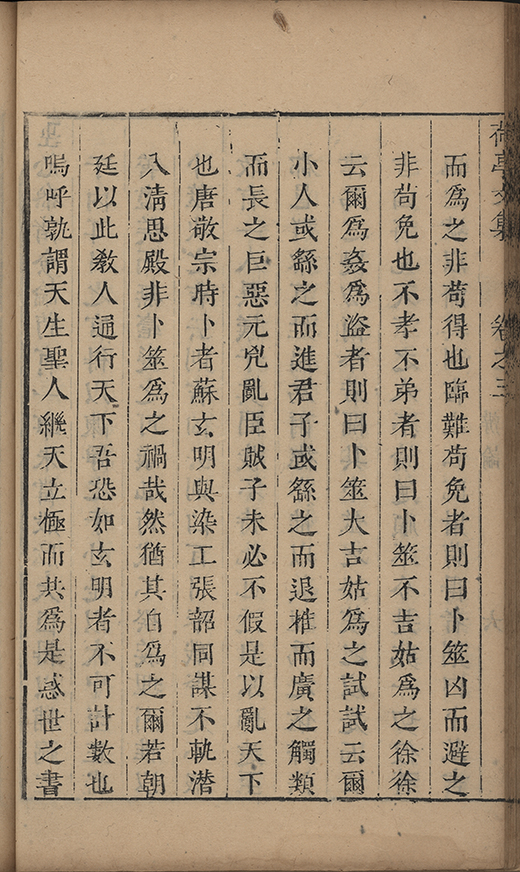 荷亭文集 卷之三
而爲之非苟得也臨難苟免者則曰卜筮凶而避之
非苟免也不孝不弟者則曰卜筮不吉姑爲之徐徐
云爾爲姦爲盜者則曰卜筮大吉姑爲之試試云爾
小人或繇之而進君子或繇之而退推而廣之觸類
而長之巨惡元兇亂臣賊子未必不假是以亂天下
也唐敬宗時卜者蘇玄明與染工張韶同謀不軌潜
入清思殿非卜筮爲之禍哉然猶其自爲之爾若朝
廷以此教人通行天下吾恐如玄明者不可計數也
嗚呼孰謂天生聖人繼天立極而共爲是惑世之書